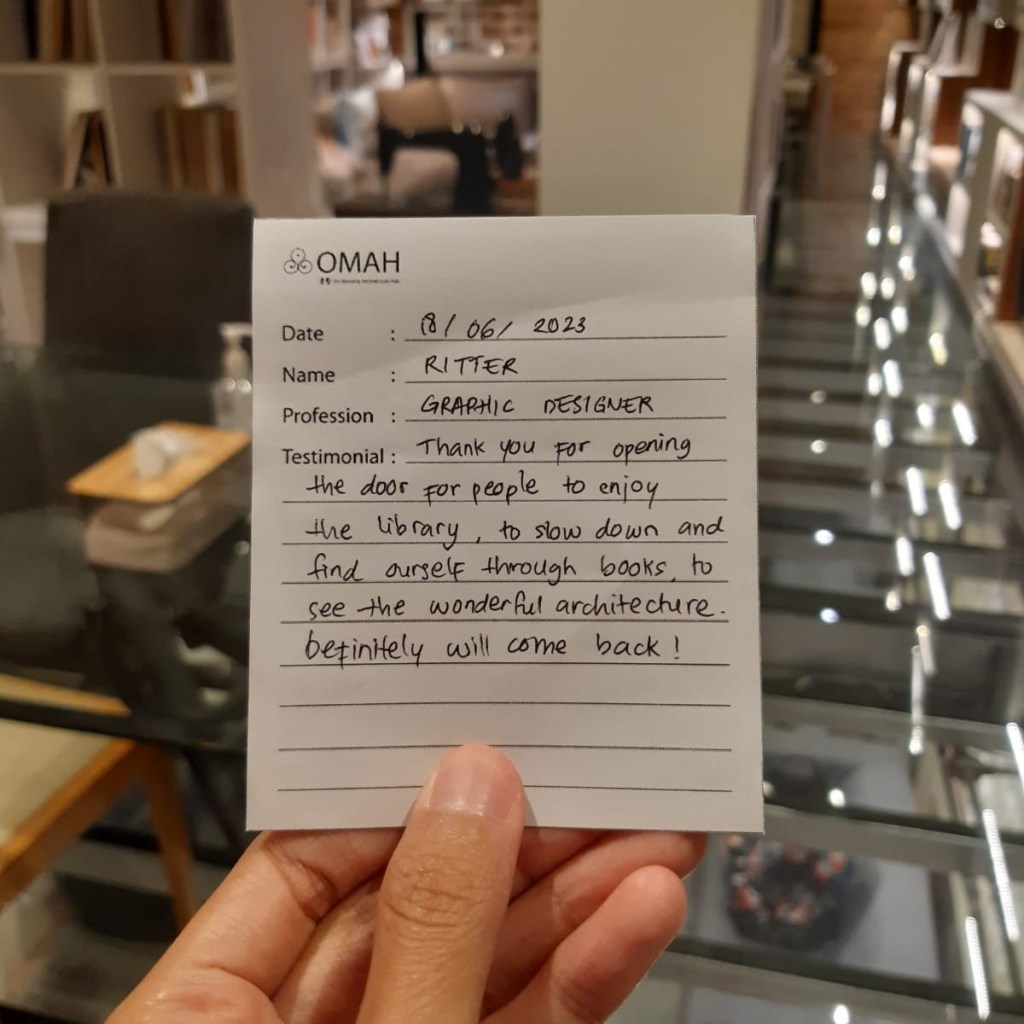 OMAH
Date : 18/06/2023
Name : RITTER
Profession : GRAPHIC DESIGNER
Testimonial : Thank you for opening
the door for people to enjoy
the library, to slow down and
find ourself through books, to
see the wonderful architecture.
Definitely will come back!